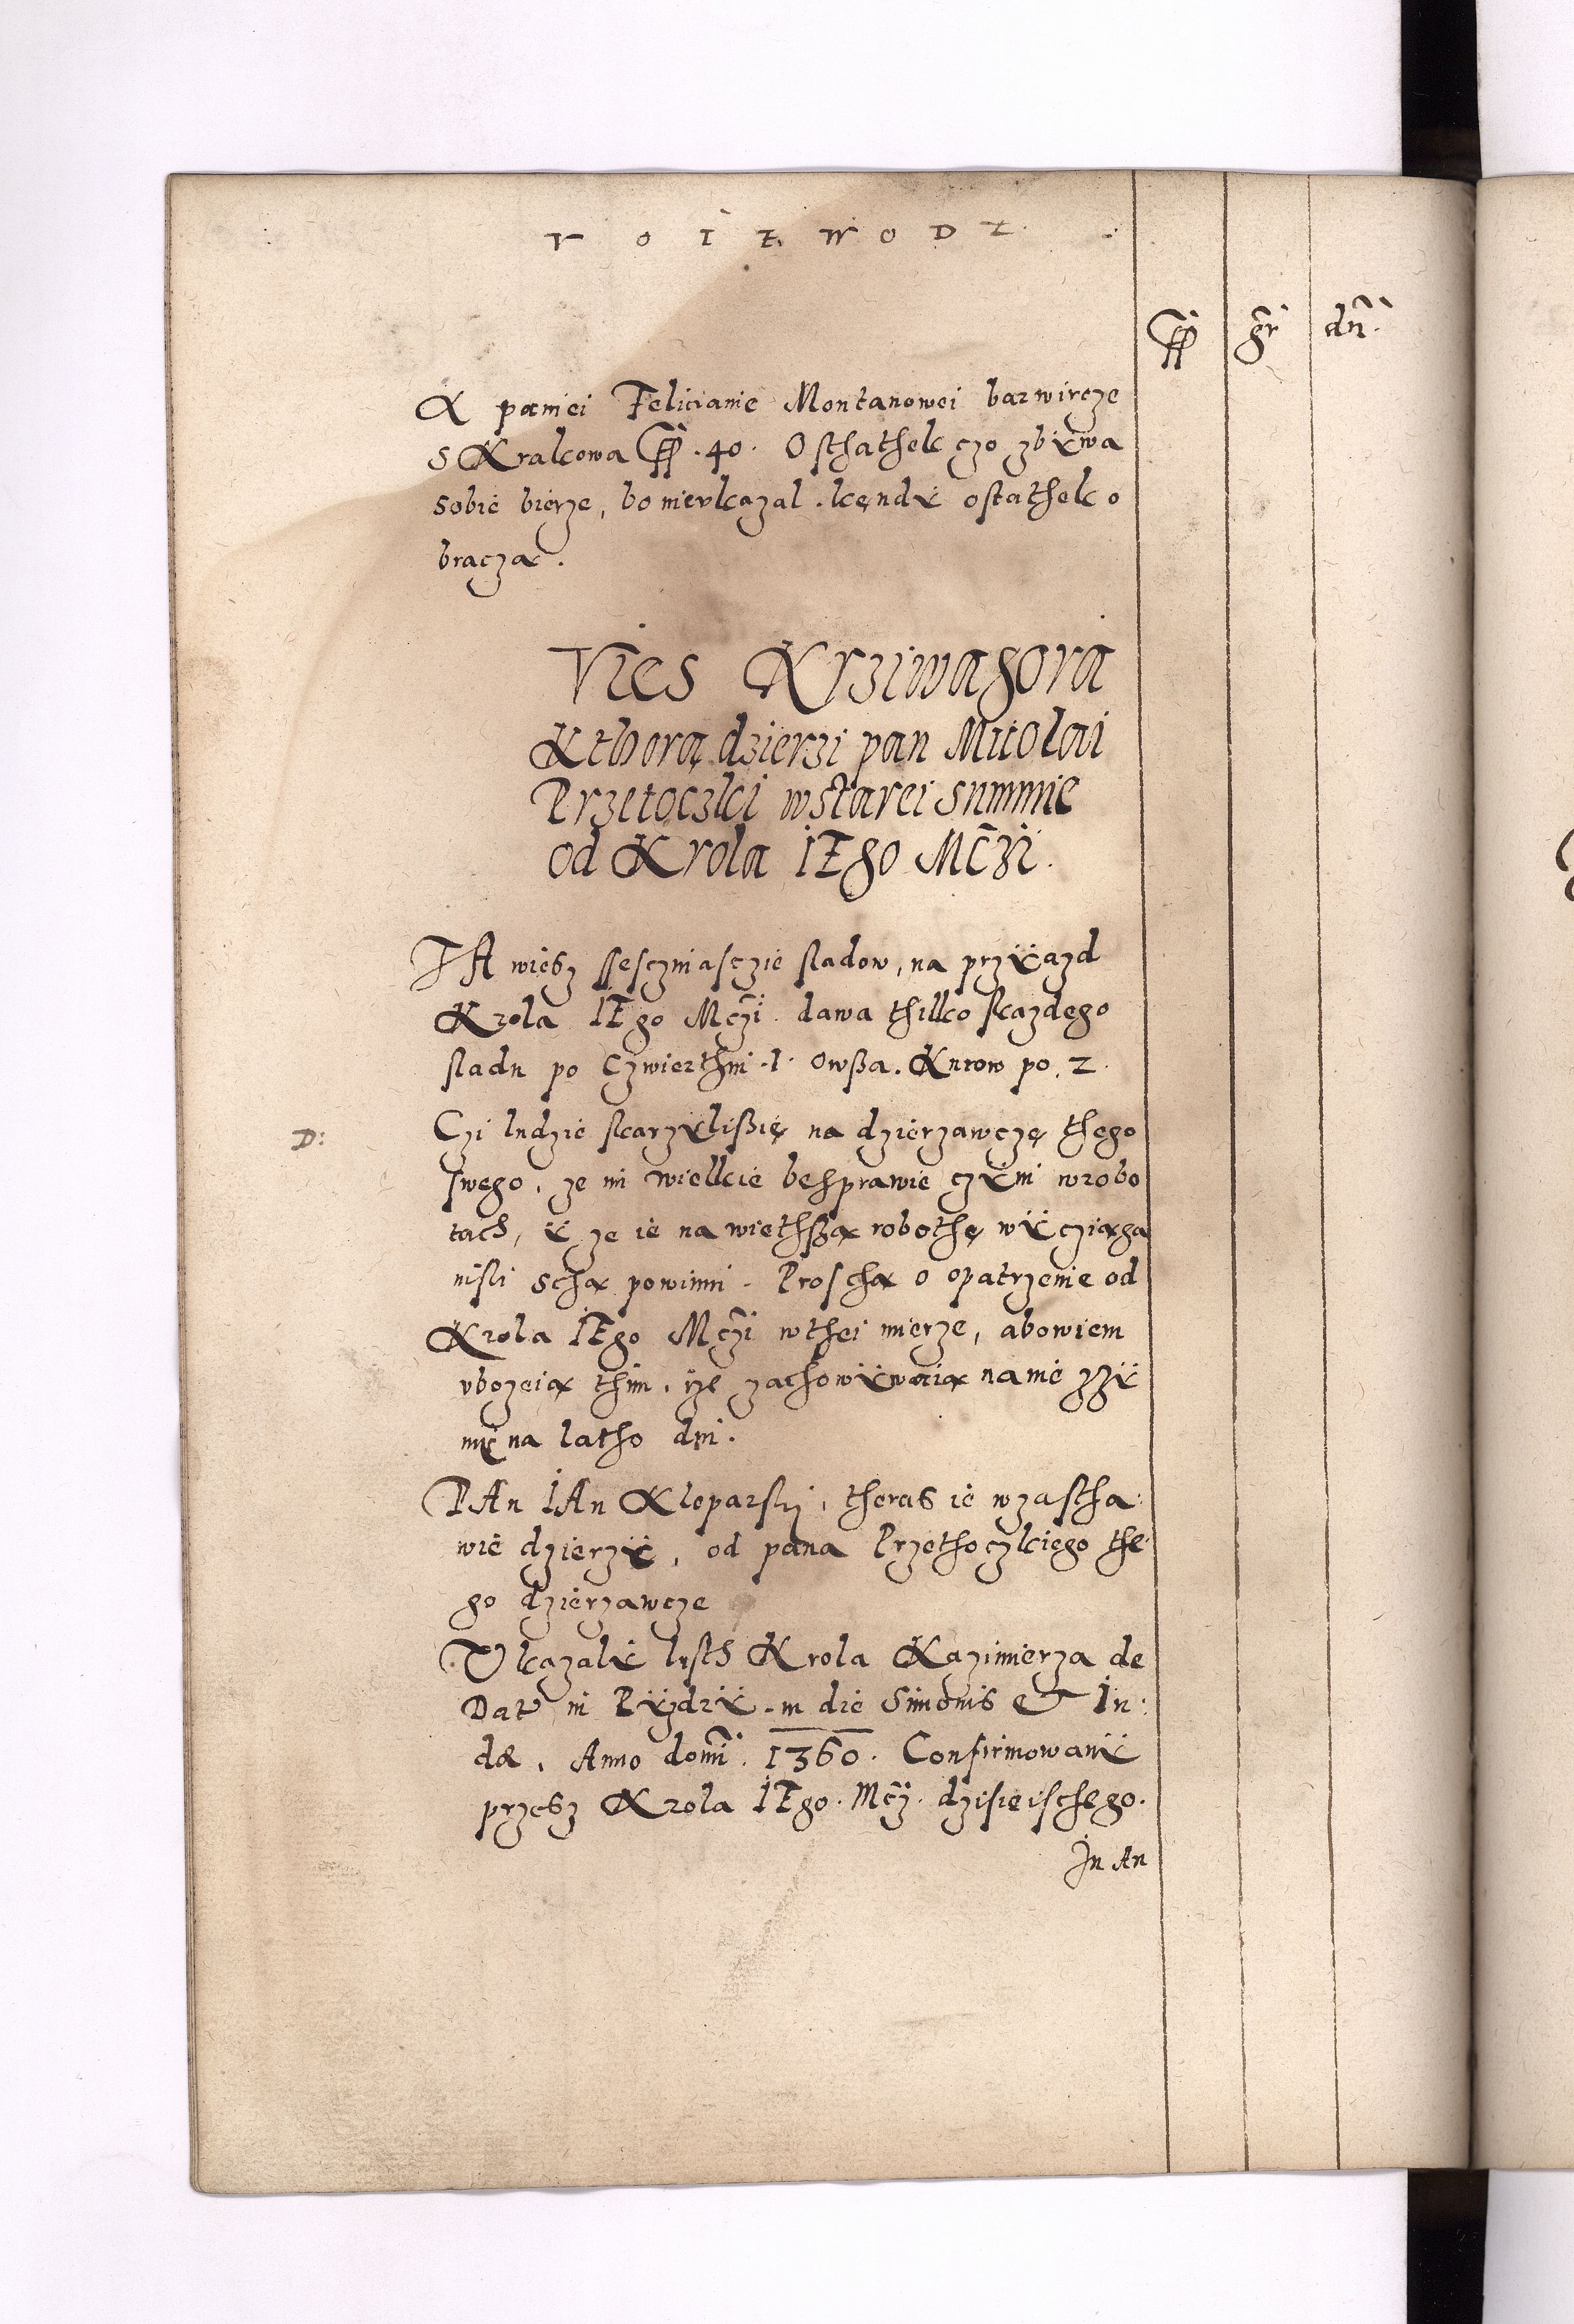 VOIEWODZ.
gr dn̄.
A paniei Felicianie Montanowei barwircze
s Krakowa .40. Osthathek czo zbÿwa
sobie bierze, bo nievkazal .kęndÿ ostathek o
braczą.
Vies Krziwagora
Kthorą dzierzi pan Micolai
Przetoczki wstarei summie
od Krola IEgo Mc̄zi.
TA wiesz ssesczinasczie sladow, na przÿazd
Krola IEgo Mc̄zi. dawa thilko skazdego
sladu po Czwierthni .1. Owßa. Kurow po .2.
D:
Czi ludzie skarzÿlißię na dzierzawczę thego
swego, ze im wielkie besprawie czÿni wrobo
tach, ÿ ze ie na wiethßą robothę wÿcziąga
nisli schą powinni. Proschą o opatrzenie od
Krola IEgo Mc̄zi wthei mierze, abowiem
vbozeią thim, ize zachowÿwaią na nie zzÿ
mÿ na latho dni.
PAn IAn Kloparski, theras ie wzastha:
wie dzierzÿ, od pana Przethoczkiego the:
go dzierzawcze
Vkazalÿ listh Krola Kazimierza de
Dat in Pÿzdrÿ. in die Simonis et Iu:
dæ. Anno domī. 1360. Confirmowanÿ
przesz Krola IEgo. Mc̄z. dzisieischego.
In An